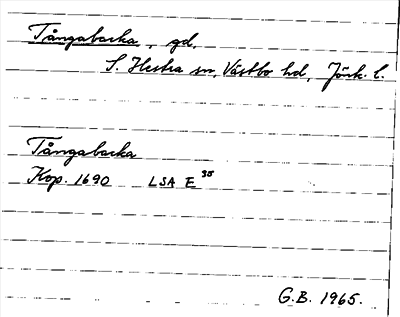 Tångabacka, gd,
S. Hestra sn, Västbo hd, Jönk. l.
Tångabacka
Kop. 1690 LSA E 35
G.B. 1965.